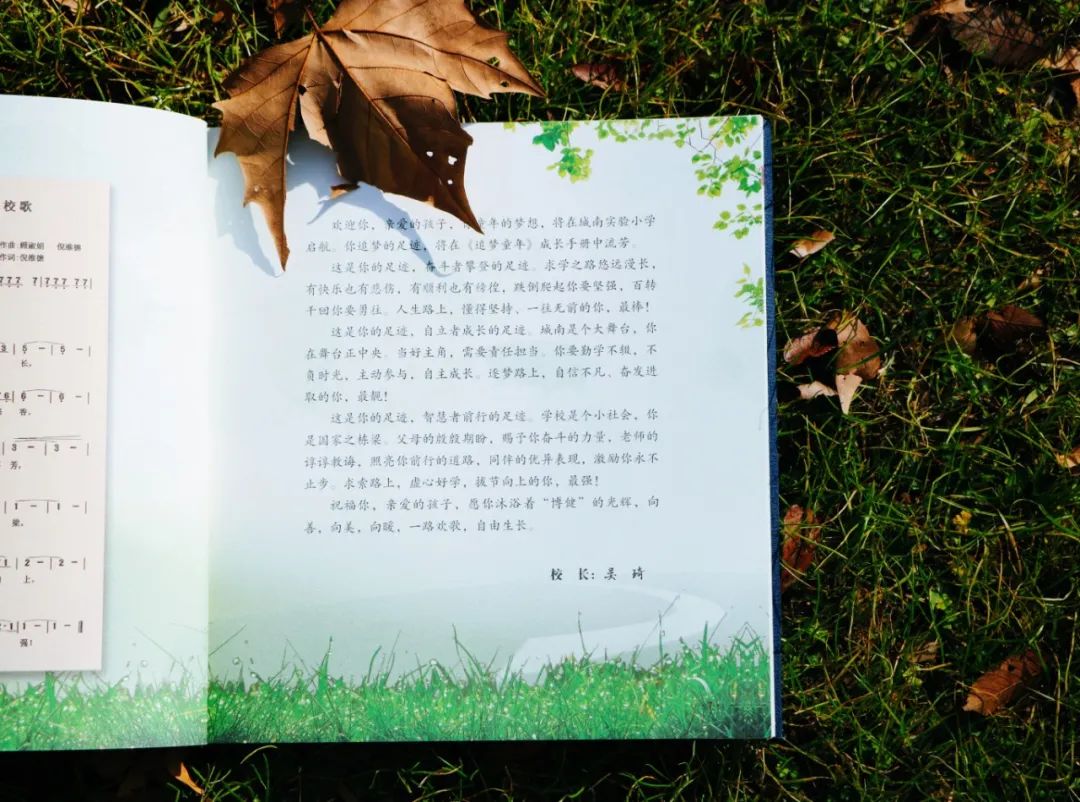 校歌
作曲:顾淑娟 倪维德
作词:倪维德
长,
香,
芳,
梁,
上,
强!
欢迎你,亲爱的孩子,你童年的梦想,将在城南实验小学
启航。你追梦的足迹,将在《追梦童年》成长手册中流芳。
这是你的足迹,奋斗者攀登的足迹。求学之路悠远漫长,
有快乐也有悲伤,有顺利也有徬徨,跌倒爬起你要坚强,百转
千回你要勇往。人生路上,懂得坚持、一往无前的你,最棒!
这是你的足迹,自立者成长的足迹。城南是个大舞台,你
在舞台正中央。当好主角,需要责任担当。你要勤学不辍,不
负时光,主动参与,自主成长。逐梦路上,自信不凡、奋发进
取的你,最靓!
这是你的足迹,智慧者前行的足迹。学校是个小社会,你
是国家之栋梁。父母的殷殷期盼,赐予你奋斗的力量,老师的
谆谆教诲,照亮你前行的道路,同伴的优异表现,激励你永不
止步。求索路上,虚心好学,拔节向上的你,最强!
祝福你,亲爱的孩子,愿你沐浴着“博健”的光辉,向
善,向美,向暖,一路欢歌,自由生长。
校 长:吴 琦